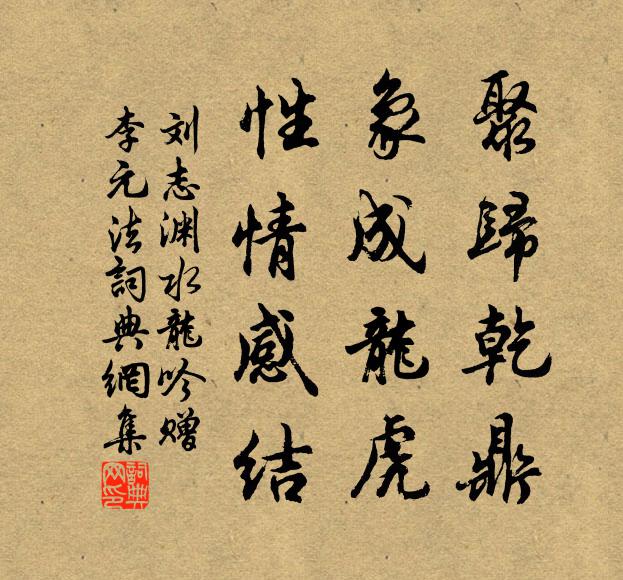 聚歸乾鼎
象成龍虎
性情感结
刘志渊水龍吟赠
李元法詞典網集
詞典网印